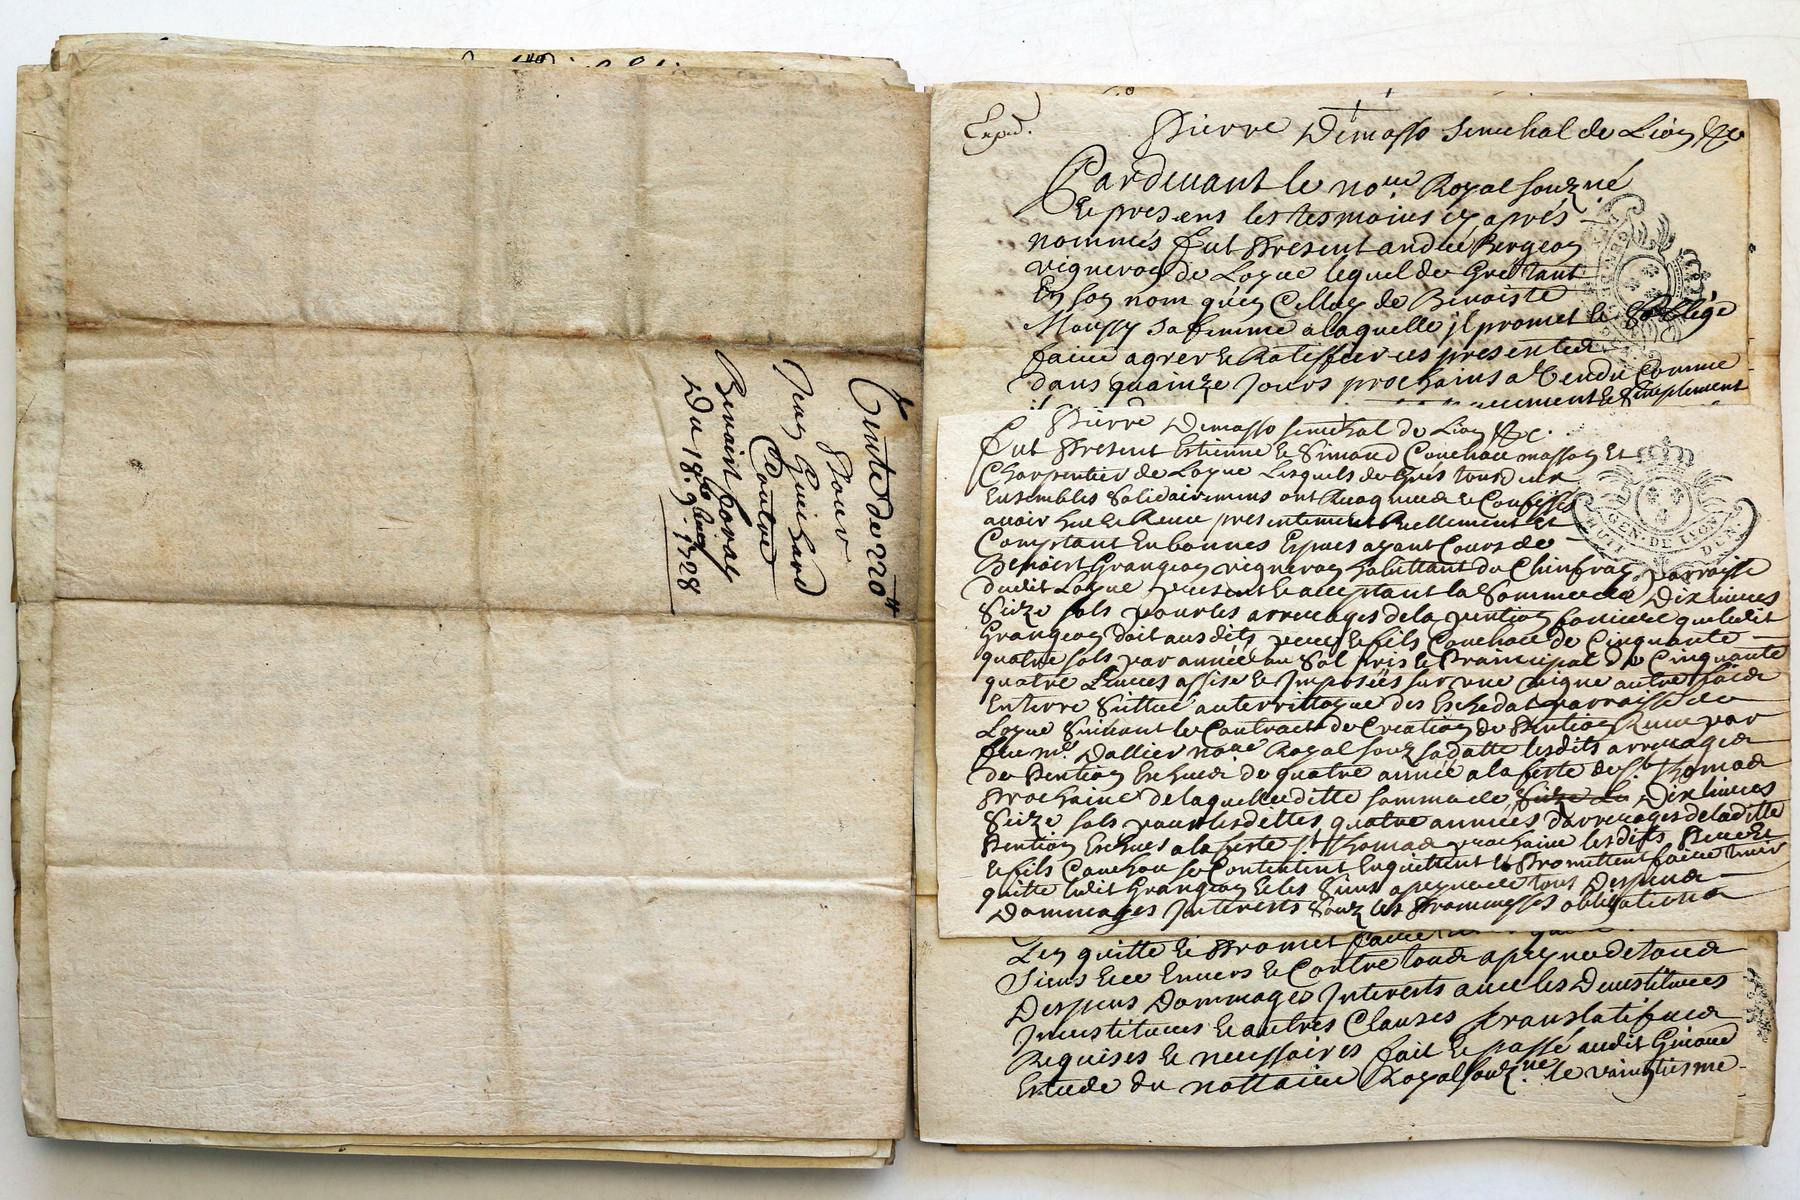 Vente de 220 ₶
Pour
Jean Guichard
Contre
Benoist
Du 18e 1728
Exped.
Pierre Demasso senechal de Lion &c
Pardevant le nore Royal souzné
Et presens les tesmoins cy aprés
nommés fut Present andré Bergeon
vigneron de Loyue lequel de Gré tant
En son nom qu'en Celluy de Benoiste
Moussy sa femme a laquelle jl promet
faire agreer & Ratiffier ces presentes
dans quainze Jours prochains a Vendu Comme
& Simplement
Pierre Demasso senechal de Lion &c.
Fut Present Estienne & Simond Couchou masson Et
Charpentier de Loyue Lesquels de Grés tous deux
Ensembles Solidairemens ont & Confessé
avoir heu & Receu presentement Reellement Et
Comptant En bonnes Espéces ayant Cours de
Benoist Grangeon vigneron habittant du Chinfray parroisse
dudit Loyue present & acceptant la Somme de Dix livres
Seize sols pour les arrerages de la pention fonciere que ledit
Grangeon doit aus dits pere & fils Couchou de Cinquante
quatre sols par année au Sol pris & Praincipal de Cinquante
quatre Livres assise & Imposées sur une vigne autre fois
En terre Scittué au territtoyre des parroisse de
Loyue Suivant le Contract de Creation de Pention Receu par
feu me. Dallier nore Royal souz sa datte lesdits arrerages
de Pention Escheus de quatre année a la feste de St. Thomas
Prochaine de laquelle ditte somme de Seize Li Dix livres
Seize sols pour lesdettes quatre années d'arrerages de la ditte
Pention Escheus a la feste St Thomas prochaine les dits Pere Et
& fils Couchou se Contentent En quittent & Promettent faire tenir
quitte ledit Grangeon & les Siens a peyne de tous Despens
Dommages Jnterests Souz les Promesses obligations
GEN. DE LYON
HUIT DEN.
Len quitte & Promet faire
Siens Envers & Contre tous a peyne de tous
Despens Dommages Jnterests avec les Devestitures
Jnvestitures & autres Clauses translatifves
Requises & necessaires fait & passé audit Giraud
Estude du nottaire Royal souzné. le vaingtiesme